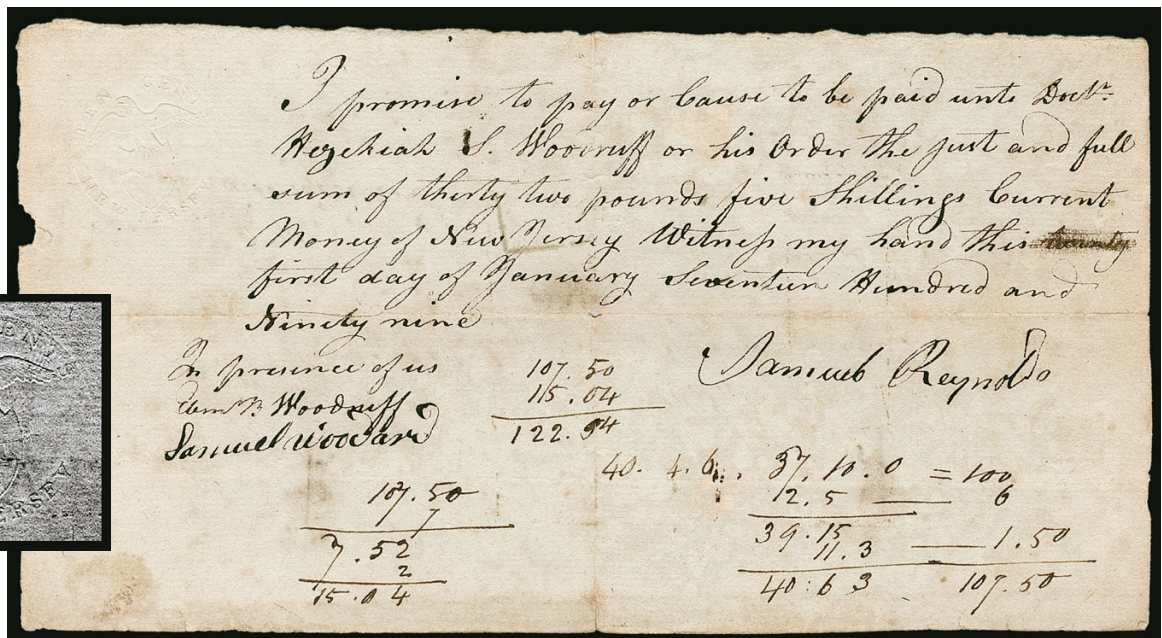 I promise to pay or Cause to be paid unto Doctr.
Hezekiah S. Woodruff or his Order the just and full
sum of thirty two pounds five Shillings Current
Money of New Jersey Witness my hand this twenty
first day of January Seventeen Hundred and
Ninety nine
In presence of us
Woodruff
Samuel Woodard
Samuel Reynolds
107.50
15.04
122.54
107.50
7
7.52
2
15.04
40. 4. 6
37. 10. 0 = 100
12. 5 — 6
39. 15
11. 3 — 1.50
40: 6 3 107.50
NEW JERSEY